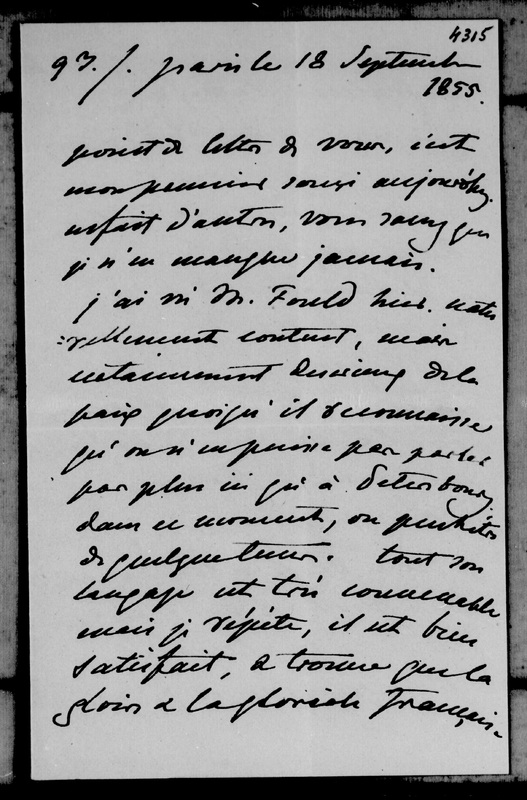 4315
97. /. paris le 18 Septembre
1855.
point de lettre de vous, c'est
mon premier souci aujourd'hui.
en fait d'autres, vous savez que
je n'en manque jamais.
j'ai vu M. Fould hier. natu
:rellement content, mais
certainement désireux de la
paix quoiqu'il reconnaisse
qu'on n'en puisse pas parler
pas plus ici qu'à Petersbourg
dans ce moment, ou peutêtre
de quelque tems. tout son
langage est très convenable
mais je répète, il est bien
satisfait, & trouve que la
gloire & la gloriole Française